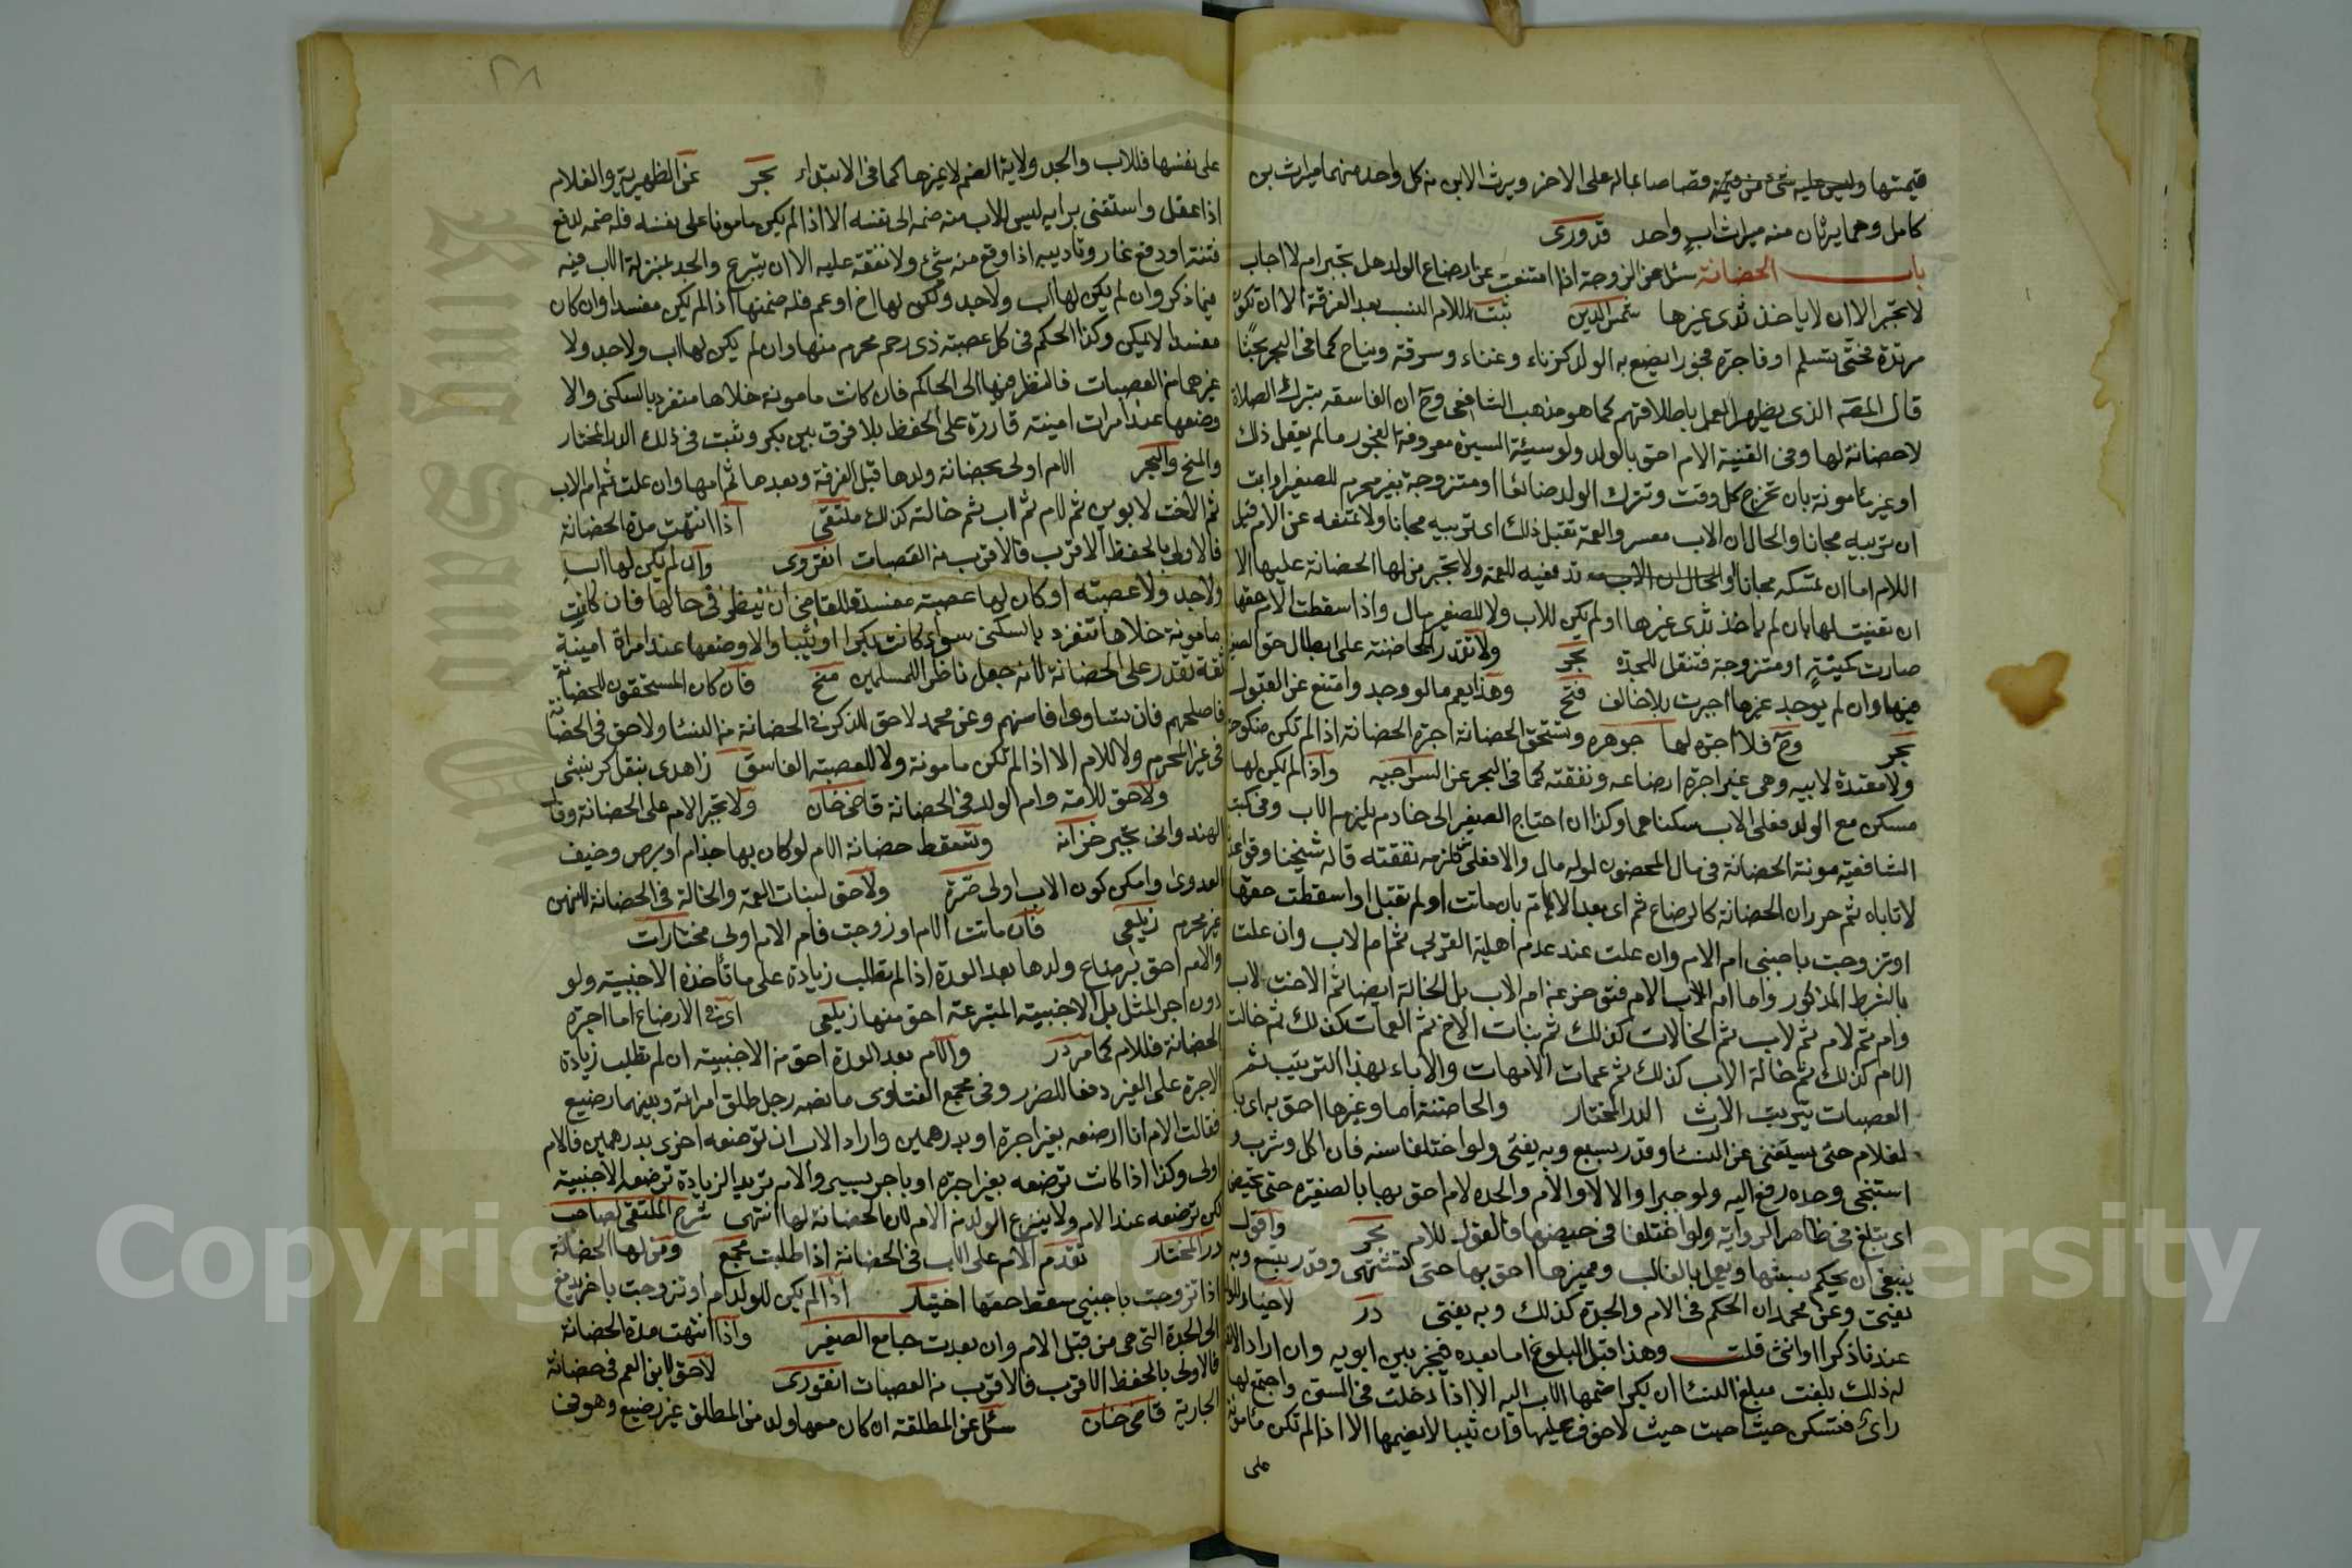 قيمتها وليس عليه شئ من قيمته قصاصا بماله على الاخر ويرث الابن من كل واحد منهما ميراث بن
كامل وهما يرثان منه ميراث اب واحد قدورى
باب الحضانة سئل عن الزوجة اذا امتنعت عن ارضاع الولد هل تجبر ام لا اجاب
لا تجبر الا ان لا ياخذ ثدى غيرها شمس الدين ثبت للام النسب بعد الفرقة الا ان تكون
مرتدة فحتى تسلم او فاجرة فجورا يضيع به الولد كزناء وغناء وسرقة ونياح كما فى البحر بحثا
قال المصه الذى يظهر العمل باطلاقهم كما هو مذهب الشافعى وح ان الفاسقه بترك الصلاة
لا حضانة لها وفى القنية الام احق بالولد ولو سيئة السيرة معروفة بالفجور ما لم يعقل ذلك
او غير مأمونة بان تخرج كل وقت وتترك الولد ضائعا او متزوجة بغير محرم للصغير او ابت
ان تربيه مجانا والحال ان الاب معسر والعمة تقبل ذلك اى تربيه مجانا ولا تمنعه عن الام قيل
اللام اما ان تمسكه مجانا او الحال ان الاب تدفعيه للعمة ولا تجبر من لها الحضانة عليها الا
ان تعينت لها بان لم ياخذ ثدى غيرها او لم يكن للاب ولا للصغير مال واذا سقطت الام حقها
صارت كميتة او متزوجة فتنقل للجدة بحر ولا تقدر الحاضنة على ابطال حق الصغير
فيها وان لم يوجد غيرها اجبرت بلا خالف فتح وهذا يعم ما لو وجد وامتنع عن القبول
بحر وح فلا اجرة لها جوهره وتستحق الحضانة اجرة الحضانة اذا لم تكن منكوحة
ولا معتدة لابيه وهى غير اجرة ارضاعه ونفقته كما فى البحر عن السراجيه واذا لم يكن لها
مسكن مع الولد فعلى الاب سكناهما وكذا ان احتاج الصغير الى خادم يلزم الاب وفى كتب
الشافعية مونة الحضانة فى مال المحضون لو له مال والا فعلى من تلزمه نفقته قاله شيخنا وقواعدنا
لا تاباه ثم حرر ان الحضانة كالرضاع ثم اى بعد الام بان ماتت او لم تقبل او اسقطت حقها
او تزوجت باجنبى ام الام وان علت عند عدم اهلية القربى ثم ام الاب وان علت
بالشرط المذكور واما ام اب الام فتؤخر عن ام الاب بل الخالة ايضا ثم الاخت لاب
وام ثم لام ثم لاب ثم الخالات كذلك ثم بنات الاخ ثم العمات كذلك ثم خالت
الام كذلك ثم خالة الاب كذلك ثم عمات الامهات والاباء بهذا الترتيب ثم
العصبات بتريت الارث الدر المختار والحاضنة اما وغيرها احق به اى با
لغلام حتى يستغنى عن النسا وقدر بسبع وبه يفتى ولو اختلفا سنه فان اكل وشرب و
استنجى وحده رفع اليه ولو جبرا والا لا والام والجده لام احق بها بالصغيره حتى تحيض
اى تبلغ فى ظاهر الرواية ولو اختلفا فى حيضها فالقول للام بحر واقول
ينبغى ان يحكم بسنها ويعمل بالغالب وغيرها احق بها حتى تشتهى وقدر بتسع وبه
يفتى وعن محمد ان الحكم فى الام والجدة كذلك وبه يفتى در لاخيار للولد
عندنا ذكرا او انثى قلت وهذا قبل البلوغ اما بعده فيخير بين ابويه وان اراد الانفراد
له ذلك بلغت مبلغ النسا ان بكرا ضمها الاب اليه الا اذا دخلت فى السن واجتمع لها
راى فتسكن حيث احبت حيث لا خوف عليها وان ثيبا لا يضمها الا اذا لم تكن مأمونة
على
على نفسها فللاب والجد ولاية الضم لا لغيرهما كما فى الابتداء بحر عن الظهيرية والغلام
اذا عقل واستغنى برايه ليس للاب منه ضمه الى نفسه الا اذا لم يكن مامونا على نفسه فله ضمه لدفع
فتنة او دفع عار وتاديبه اذا وقع منه شئ ولا نفقة عليه الا ان يتبرع والجد بمنزلة الاب فيه
فيما ذكر وان لم يكن لها اب ولا جد ولكن لها اخ او عم فله ضمها اذا لم يكن مفسدا وان كان
مفسدا لا يمكن وكذا الحكم فى كل عصبة ذى رحم محرم منها وان لم يكن لها اب ولا جد ولا
غيرهما من العصبات فالنظر فيها الى الحاكم فان كانت مامونة خلاها متفرد بالسكنى والا
وضعها عند امرات امينة قادرة على الحفظ بلا فرق بين بكر وثيب فى ذلك الدر المختار
والمنح والبحر الام اولى بحضانة ولدها قبل الفرقة وبعدها ثم امها وان علت ثم ام الاب
ثم الاخت لابوين ثم لام ثم اب ثم خالته كذلك ملتقى اذا انتهت مدة الحضانة
فالاولى بالحفظ الاقرب فالاقرب من العصبات انقروى وان لم يكن لها اب
ولا جد ولا عصبته او كان لها عصبة مفسدة فللقاضى ان ينظر فى حالها فان كانت
مامونة خلاها تنفرد بالسكنى سواء كانت بكرا او ثيبا والا وضعها عند امراة امينة
ثقة تقدر على الحضانة لانه جعل ناظرا للمسلمين منح فان كان المستحقون للحضانة
فاصلحهم فان تساووا فاسنهم وعن محمد لا حق للذكر فى الحضانة من النسا ولا حق فى الحضانة
فى غير المحرم ولا للام الا اذا لم تكن مامونة ولا للعصبة الفاسق زاهدى بنقل كرنبشى
ولا حق للامة وام الولد فى الحضانة قاضى خان ولا تجبر الام على الحضانة وقال
الهندوانى تجبر خزانه وتسقط حضانة الام لو كان بها جذام او برص وخيف
العدوى وامكن كون الاب اولى صرة ولا حق لبنات العمة والخالة فى الحضانة لانهن
غير محرم زيلعى فان ماتت الام او زوجت فام الام اولى مختارات
والام احق برضاع ولدها بعد العدة اذا لم تطلب زيادة على ما تأخذه الاجنبية ولو
دون اجر المثل بل الاجنبية المتبرعة احق منها زيلعى اى فى الارضاع اما اجرة
الحضانة فللام كما مر در والام بعد العدة احق من الاجنبية ان لم تطلب زيادة
الاجرة على الغير دفعا للضرر وفى مجمع الفتاوى ما نصه رجل طلق امراته وبينهما رضيع
فقالت الام انا ارضعه بغير اجرة او بدرهمين واراد الاب ان ترضعه اخرى بدرهمين فالام
اولى وكذا اذا كانت ترضعه بغير اجرة او باجر يسير والام تريد الزيادة ترضعه الاجنبية
لكن ترضعه عند الام ولا ينزع الولد من الام لان الحضانة لها انتهى شرح الملتقى لصاحب
در المختار تقدم الام على الاب فى الحضانة اذا طلبت مجمع ومن لها الحضانة
اذا تزوجت باجنبى سقط حقها اختيار اذا لم يكن للولد ام او تزوجت باخر يدفع
الى الجدة التى هى من قبل الام وان بعدت جامع الصغير واذا انتهت مدة الحضانة
فالاولى بالحفظ الاقرب فالاقرب من العصبات انقورى لا حق لابن العم فى حضانة
الجارية قاضى خان سئل عن المطلقة ان كان معها ولد من المطلق غير رضيع وهو فى